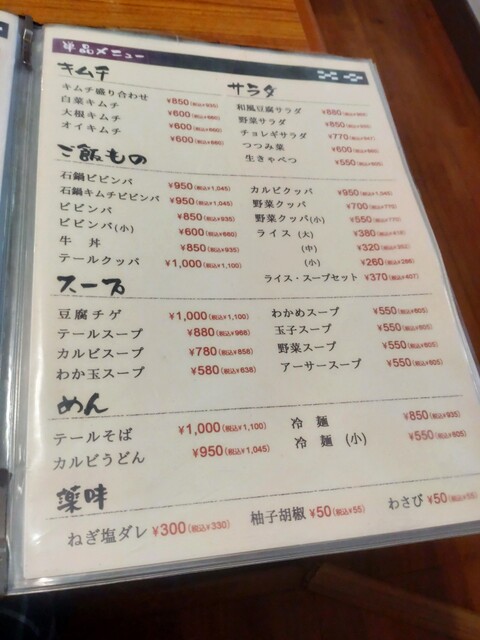 単品メニュー
キムチ
キムチ盛り合わせ ¥850(税込¥935)
白菜キムチ ¥600(税込¥660)
大根キムチ ¥600(税込¥660)
オイキムチ ¥600(税込¥660)
サラダ
和風豆腐サラダ ¥880
野菜サラダ ¥850(税込¥935)
チョレギサラダ ¥770(税込¥847)
つつみ菜 ¥600
生きゃべつ ¥550(税込¥605)
ご飯もの
石鍋ビビンバ ¥950(税込¥1,045)
石鍋キムチビビンバ ¥950(税込¥1,045)
ビビンバ ¥850(税込¥935)
ビビンバ(小) ¥600(税込¥660)
牛丼 ¥850(税込¥935)
テールクッパ ¥1,000(税込¥1,100)
カルビクッパ ¥950(税込¥1,045)
野菜クッパ ¥700(税込¥770)
野菜クッパ(小) ¥550(税込¥605)
ライス(大) ¥380(税込¥418)
(中) ¥320(税込¥352)
(小) ¥260(税込¥286)
ライス・スープセット ¥370(税込¥407)
スープ
豆腐チゲ ¥1,000(税込¥1,100)
テールスープ ¥880(税込¥968)
カルビスープ ¥780(税込¥858)
わか玉スープ ¥580(税込¥638)
わかめスープ ¥550(税込¥605)
玉子スープ ¥550(税込¥605)
野菜スープ ¥550(税込¥605)
アーサースープ ¥550(税込¥605)
めん
テールそば ¥1,000(税込¥1,100)
カルビうどん ¥950(税込¥1,045)
冷麺 ¥850(税込¥935)
冷麺(小) ¥550(税込¥605)
薬味
ねぎ塩ダレ ¥300(税込¥330)
柚子胡椒 ¥50(税込¥55)
わさび ¥50(税込¥55)